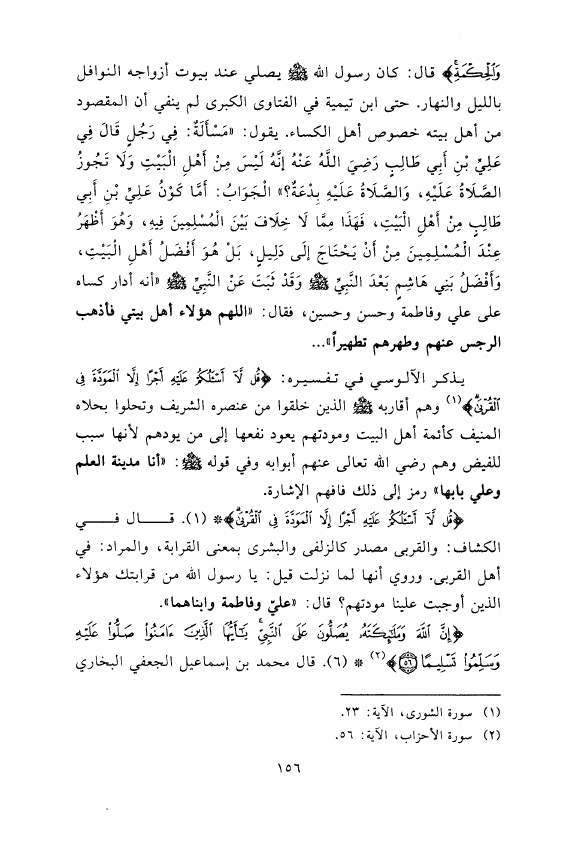 وَالْحِكْمَةِ﴾ قال: كان رسول الله ﷺ يصلي عند بيوت أزواجه النوافل
بالليل والنهار. حتى ابن تيمية في الفتاوى الكبرى لم ينفي أن المقصود
من أهل بيته خصوص أهل الكساء. يقول: «مَسْأَلَةٌ: فِي رَجُلٍ قَالَ فِي
عَلِيِّ بْنِ أَبِي طَالِبٍ رَضِيَ اللَّهُ عَنْهُ إِنَّهُ لَيْسَ مِنْ أَهْلِ الْبَيْتِ وَلَا تَجُوزُ
الصَّلَاةُ عَلَيْهِ، وَالصَّلَاةُ عَلَيْهِ بِدْعَةٌ؟» الْجَوَابُ: أَمَّا كَوْنُ عَلِيِّ بْنِ أَبِي
طَالِبٍ مِنْ أَهْلِ الْبَيْتِ، فَهَذَا مِمَّا لَا خِلَافَ بَيْنَ الْمُسْلِمِينَ فِيهِ، وَهُوَ أَظْهَرُ
عِنْدَ الْمُسْلِمِينَ مِنْ أَنْ يَحْتَاجَ إِلَى دَلِيلٍ، بَلْ هُوَ أَفْضَلُ أَهْلِ الْبَيْتِ،
وَأَفْضَلُ بَنِي هَاشِمٍ بَعْدَ النَّبِيِّ ﷺ وَقَدْ ثَبَتَ عَنْ النَّبِيِّ ﷺ «أنه أدار كساه
على علي وفاطمة وحسن وحسين، فقال: «اللهم هؤلاء أهل بيتي فأذهب
الرجس عنهم وطهرهم تطهيراً»...
يذكر الآلوسي في تفسيره: ﴿قُل لَّا أَسْئَلُكُمْ عَلَيْهِ أَجْرًا إِلَّا الْمَوَدَّةَ فِي
الْقُرْبَى﴾(١) وهم أقاربه ﷺ الذين خلقوا من عنصره الشريف وتحلوا بحلاه
المنيف كأئمة أهل البيت ومودتهم يعود نفعها إلى من يودهم لأنها سبب
للفيض وهم رضي الله تعالى عنهم أبوابه وفي قوله ﷺ: «أنا مدينة العلم
وعلي بابها» رمز إلى ذلك فافهم الإشارة.
﴿قُل لَّا أَسْئَلُكُمْ عَلَيْهِ أَجْرًا إِلَّا الْمَوَدَّةَ فِي الْقُرْبَى﴾* (١). قال في
الكشاف: والقربى مصدر كالزلفى والبشرى بمعنى القرابة، والمراد: في
أهل القربى. وروي أنها لما نزلت قيل: يا رسول الله من قرابتك هؤلاء
الذين أوجبت علينا مودتهم؟ قال: «عليّ وفاطمة وابناهما».
﴿إِنَّ اللَّهَ وَمَلَائِكَتَهُ يُصَلُّونَ عَلَى النَّبِيِّ يَا أَيُّهَا الَّذِينَ ءَامَنُوا صَلُّوا عَلَيْهِ
وَسَلِّمُوا تَسْلِيمًا ٥٦﴾(٢) * (٦). قال محمد بن إسماعيل الجعفي البخاري
(١) سورة الشورى، الآية: ٢٣.
(٢) سورة الأحزاب، الآية: ٥٦.
١٥٦